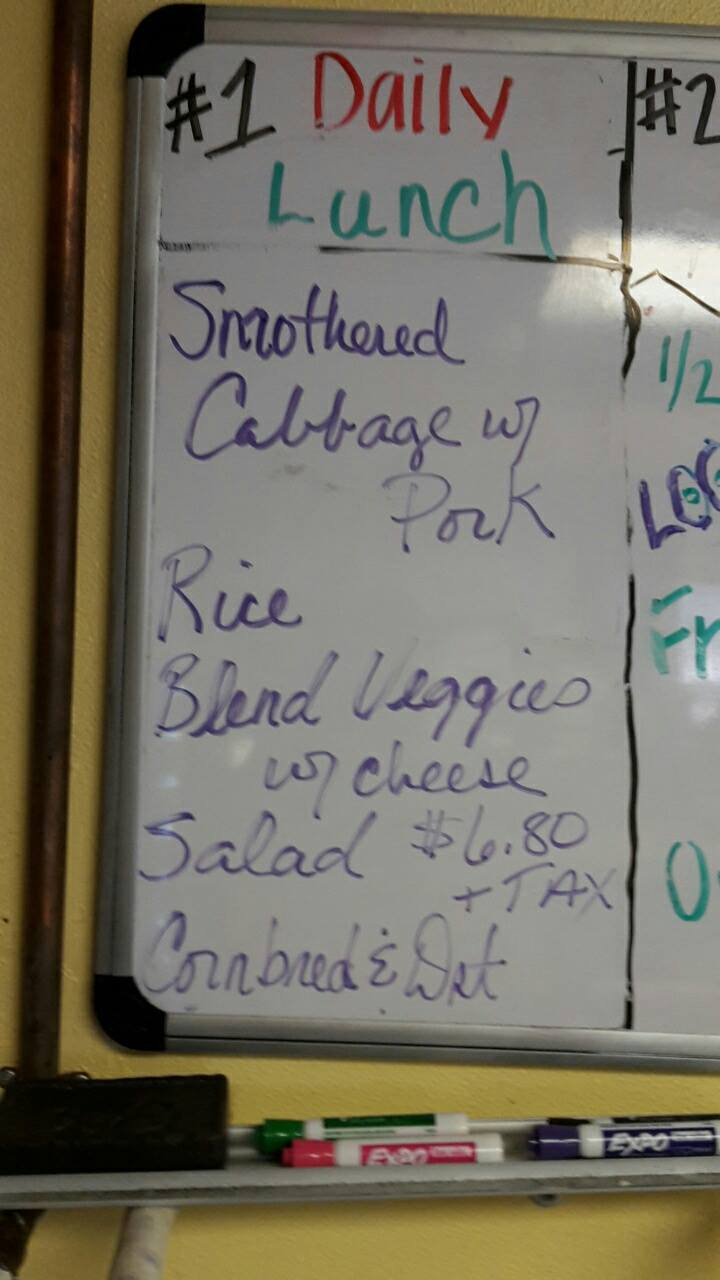 #1 Daily
Lunch
Smothered
Cabbage w/
Pork
Rice
Blend Veggies
w/ cheese
Salad $6.80
+ TAX
Cornbred & Drt
#2
1/2
Fr
EXPO
EXPO